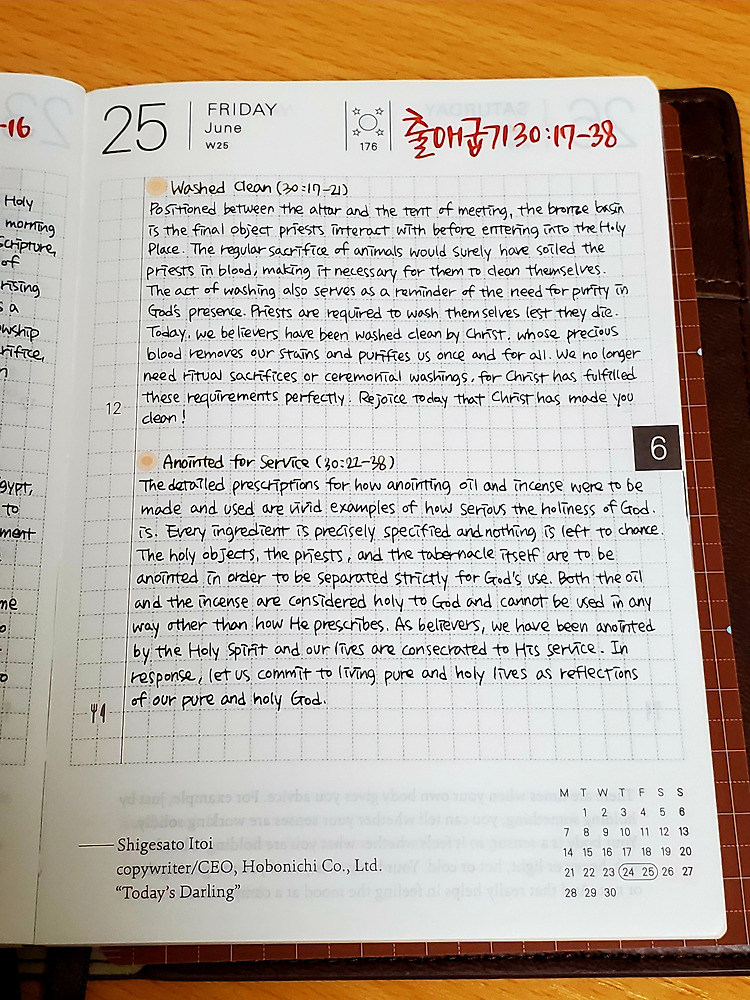 -16
Holy
morning
Scripture,
of
rising
s a
owship
rifice,
n
gypt,
to
ment
me
o
25
FRIDAY
June
W25
176
출애굽기 30:17-38
Washed Clean (30:17-21)
Positioned between the altar and the tent of meeting, the bronze basin
is the final object priests interact with before entering into the Holy
Place. The regular sacrifice of animals would surely have soiled the
priests in blood, making it necessary for them to clean themselves.
The act of washing also serves as a reminder of the need for purity in
God's presence. Priests are required to wash themselves lest they die.
Today, we believers have been washed clean by Christ, whose precious
blood removes our stains and purifies us once and for all. We no longer
need ritual sacrifices or ceremonial washings, for Christ has fulfilled
these requirements perfectly. Rejoice today that Christ has made you
12
clean!
6
Anointed for Service (30:22-38)
The detailed prescriptions for how anointing oil and incense were to be
made and used are vivid examples of how serious the holiness of God.
is. Every ingredient is precisely specified and nothing is left to chance.
The holy objects, the priests, and the tabernacle itself are to be
anointed in order to be separated strictly for God's use. Both the oil
and the incense are considered holy to God and cannot be used in any
way other than how He prescribes. As believers, we have been anointed
by the Holy Spirit and our lives are consecrated to His service. In
response, let us commit to living pure and holy lives as reflections
of our pure and holy God.
M T W T F S S
1 2 3 4 5 6
7 8 9 10 11 12 13
14 15 16 17 18 19 20
21 22 23 24 25 26 27
28 29 30
—— Shigesato Itoi
copywriter/CEO, Hobonichi Co., Ltd.
“Today's Darling”